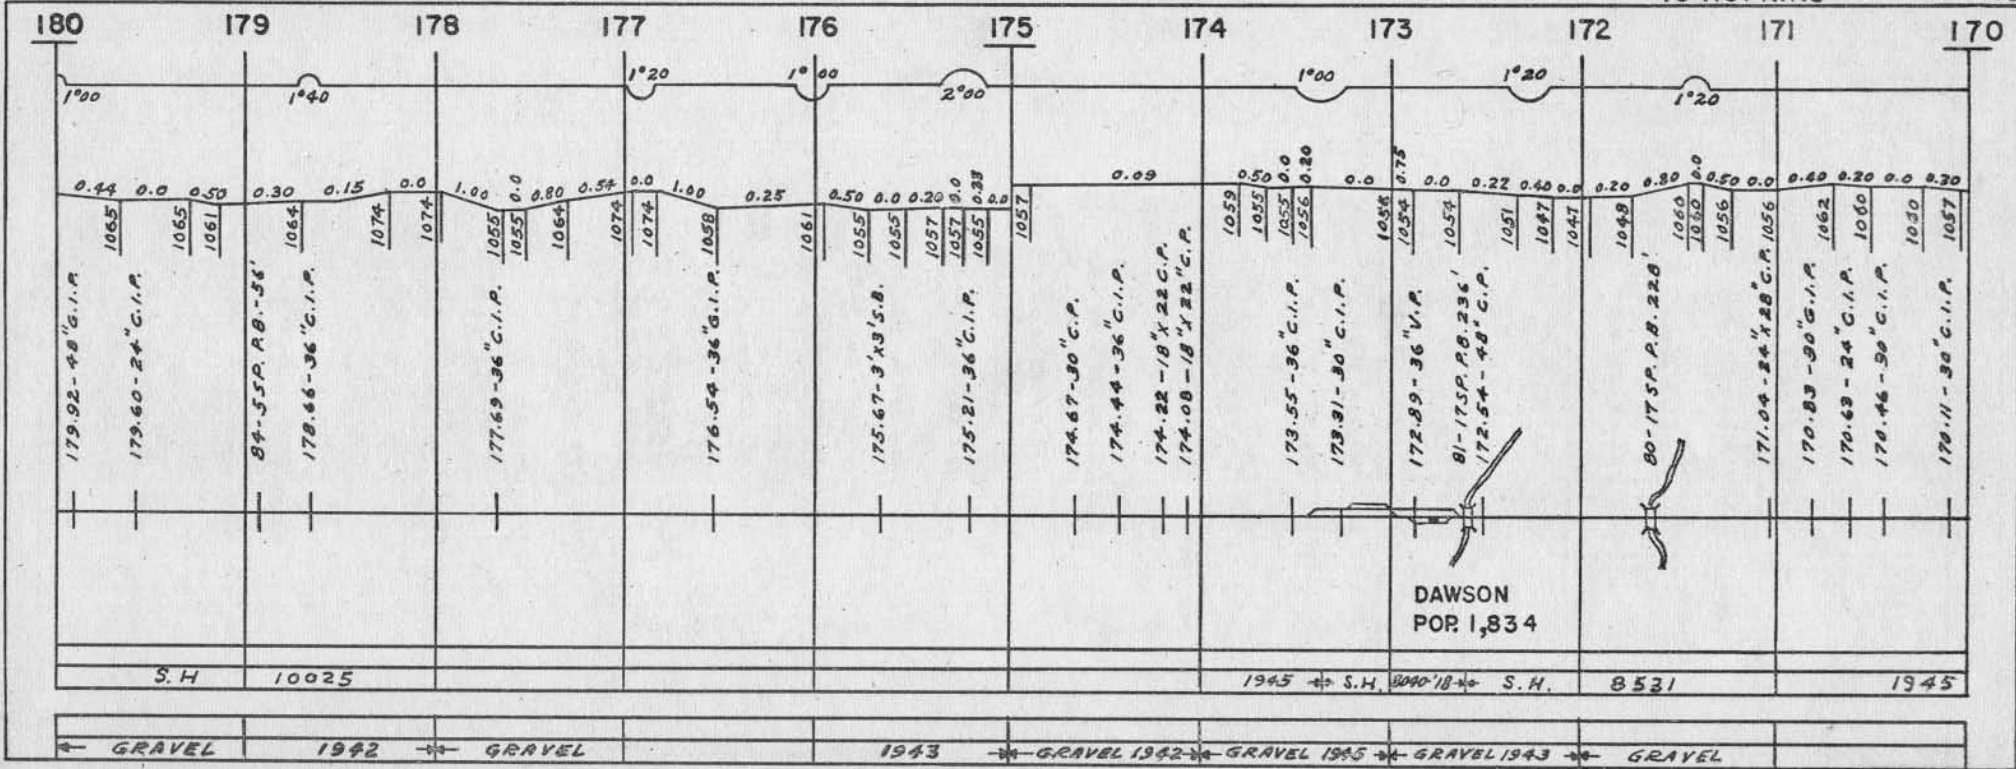 180 179 178 177 176 175 174 173 172 171 170
1°00 1°40 1°20 1°00 2°00 1°00 1°20 1°20
0.44 0.0 0.50 0.30 0.15 0.0 1.00 0.0 0.80 0.54 0.0 1.00 0.25 0.50 0.0 0.20 0.0 0.33 0.0 0.09 0.50 0.0 0.20 0.0 0.75 0.0 0.22 0.40 0.0 0.20 0.80 0.0 0.50 0.0 0.40 0.20 0.0 0.30
1065 1065 1061 1064 1074 1074 1055 1055 1064 1074 1074 1058 1061 1055 1055 1057 1057 1055 1057 1059 1055 1055 1056 1056 1054 1054 1051 1047 1047 1048 1060 1060 1056 1056 1062 1060 1060 1057
179.92-48"G.I.P.
179.60-24"C.I.P.
84-5SP. P.B.-56'
178.66-36"C.I.P.
177.69-36"C.I.P.
176.54-36"G.I.P.
175.67-3'X3'S.B.
175.21-36"C.I.P.
174.67-30"C.P.
174.44-36"C.I.P.
174.22-18"X22"C.P.
174.08-18"X22"C.P.
173.55-36"C.I.P.
173.31-30"C.I.P.
172.89-36"V.P.
81-17SP. P.B. 236'
172.54-48"C.P.
80-17SP. P.B. 228'
171.04-24"X28"C.P.
170.83-30"G.I.P.
170.63-24"C.I.P.
170.46-30"C.I.P.
170.11-30"C.I.P.
DAWSON
POP. 1,834
S.H 10025 1945 S.H. 8040'18 S.H. 8531 1945
GRAVEL 1942 GRAVEL 1943 GRAVEL 1942 GRAVEL 1945 GRAVEL 1943 GRAVEL